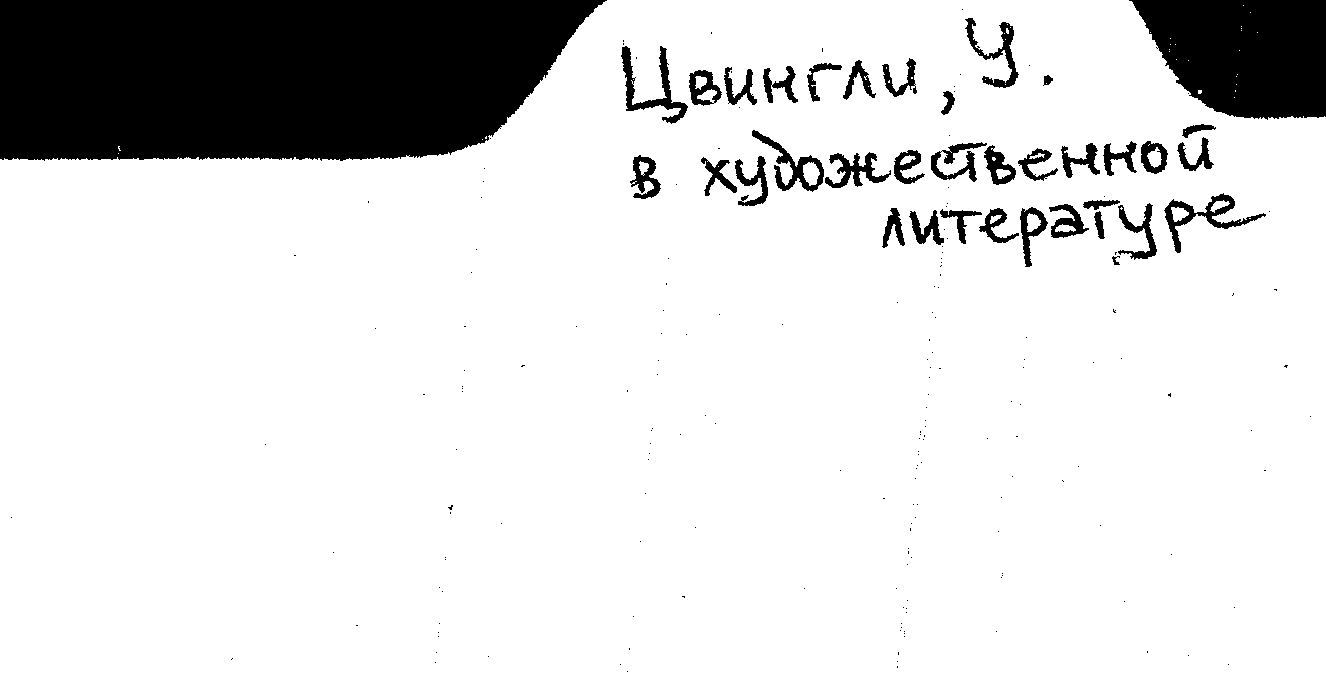 Цвингли, У.
в художественной
литературе